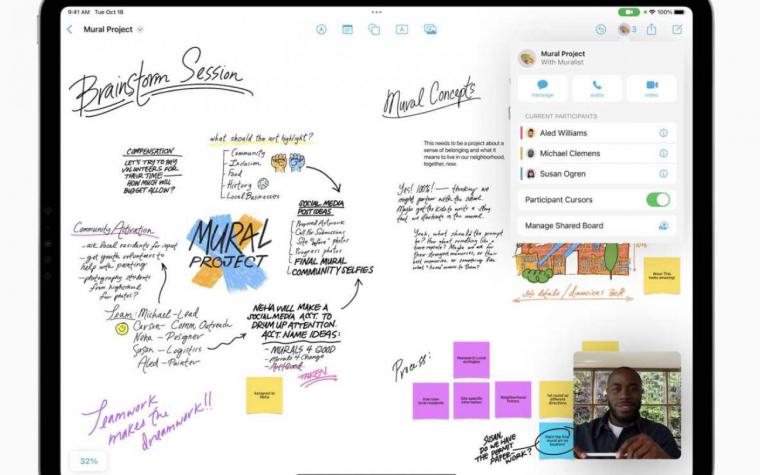 9:41 AM Tue Oct 18
100%
Mural Project
3
Brainstorm Session
Mural Concepts
COMPENSATION
LET'S TRY TO PAY
VOLUNTEERS FOR
THEIR TIME —
HOW MUCH WILL
BUDGET ALLOW?
what should the art highlight?
Community
Inclusion
Food
History
Local Businesses
SOCIAL MEDIA
POST IDEAS
Proposed Artwork
Call for Submissions
Site "Before" photos
Progress photos
FINAL MURAL
COMMUNITY SELFIES
MURAL
PROJECT
Community Activation
- ask local residents for input
- get youth volunteers to
help with painting
- photography students
from highschool
for photos?
Team: Michael - Lead
Carson - Comm. Outreach
Neha - Designer
Susan - Logistics
Aled - Painter
NEHA WILL MAKE A
SOCIAL MEDIA ACCT. TO
DRUM UP ATTENTION.
ACCT. NAME IDEAS:
- MURALS 4 GOOD
- Murals 4 Change
- Art Good
TAKEN
Teamwork
makes the
dreamwork!!
Assigned to
Neha
32%
This needs to be a project about a
sense of belonging and what it
means to live in our neighborhood,
together, now.
Yes! 100%! — thinking we
ought partner with the school.
Maybe get the kids to write a story
that we illustrate in the mural.
Yeah, what should the prompt
be? How about something like
Maybe we ask them
their strongest memories, or their
best memories, or something like
what "home" means to them?
Mural Project
With Muralist
message
audio
video
CURRENT PARTICIPANTS
Aled Williams
Michael Clemens
Susan Ogren
Participant Cursors
Manage Shared Board
Wow! This
looks amazing!
Site details / dimensions
Process:
Research Local
Interview
local residents
Site specific
information
Neighborhood
history
1st round w/
different
directions
Paint the final
mural art on
location!
SUSAN,
DO WE HAVE
THE PERMIT
PAPER-
WORK?